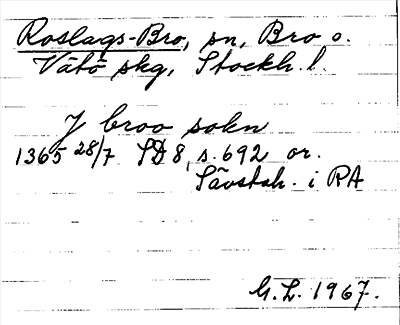 Roslags-Bro, sn, Bro o.
Vätö skg, Stockh. l.
J broo sokn
1365 28/7 SD 8, s. 692 or.
Sävstah. i RA
G.L. 1967.